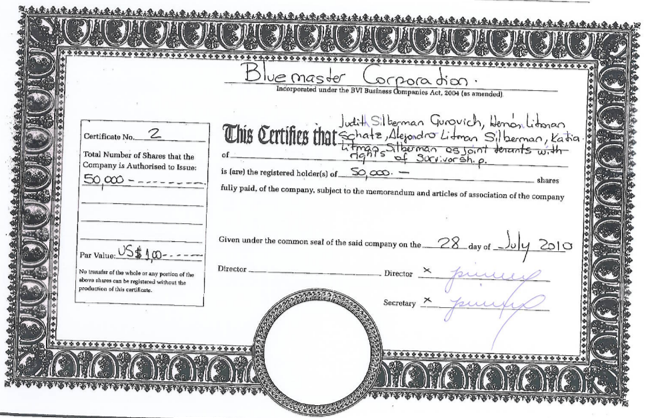 Bluemaster Corporation.
Incorporated under the BVI Business Companies Act, 2004 (as amended)
Certificate No. 2
Total Number of Shares that the
Company is Authorised to Issue:
50,000 -
Par Value: US$ 1,00-
No transfer of the whole or any portion of the
above shares can be registered without the
production of this certificate.
This Certifies that Judith Silberman Gurovich, Litman
Schatz, Alejandro Litman Silberman, Katia
Litman Silberman as joint tenants with
of rights of survivorship.
is (are) the registered holder(s) of 50,000. — shares
fully paid, of the company, subject to the memorandum and articles of association of the company
Given under the common seal of the said company on the 28 day of July 2010
Director Director x
Secretary x